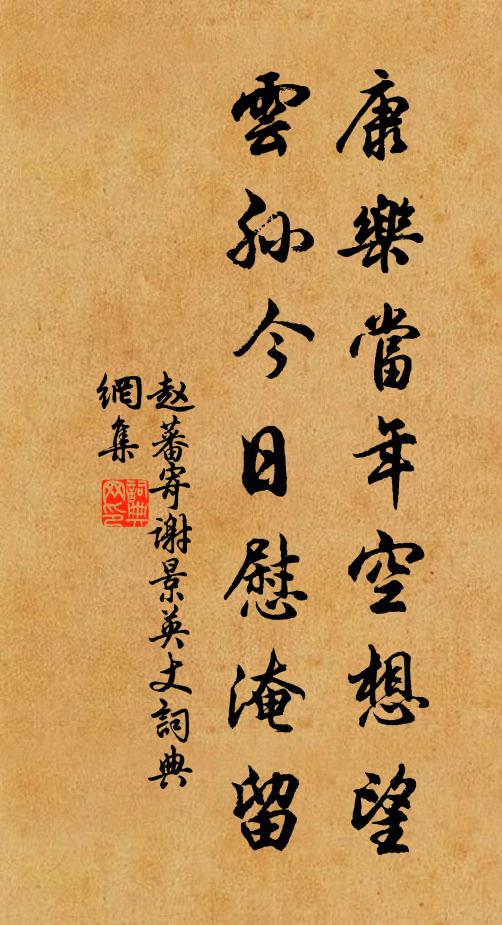 康樂當年空想望
雲孫今日慰淹留
赵蕃寄谢景英丈詞典
網集
詞典
網印